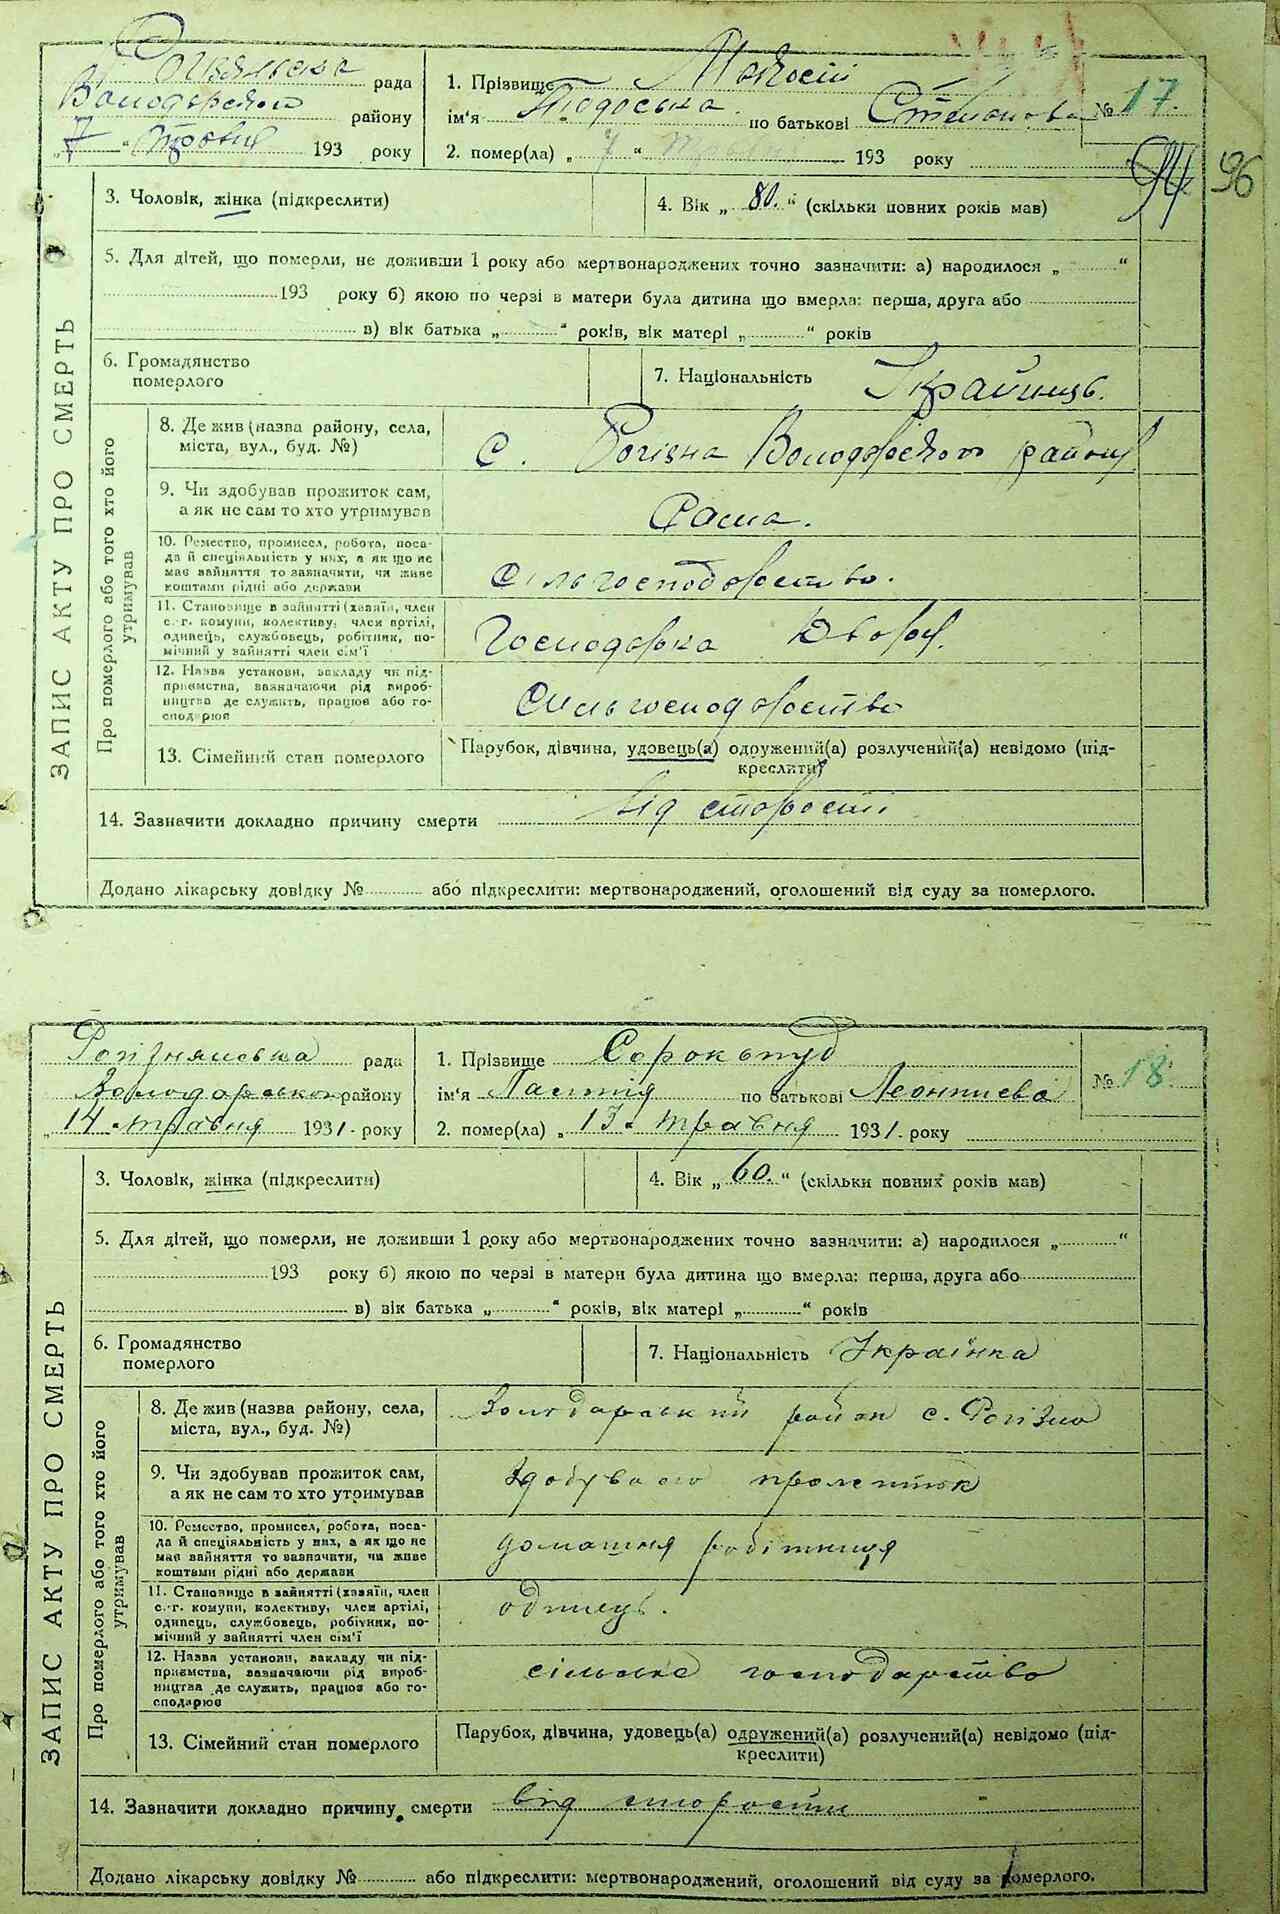 рада
Володарского району
„7“ травня 193 року
1. Прізвище
ім'я Тодоська по батькові Степанова № 17.
2. помер(ла) „7“ травня 193 року
94 96
ЗАПИС АКТУ ПРО СМЕРТЬ
3. Чоловік, жінка (підкреслити)
4. Вік „80.“ (скільки повних років мав)
5. Для дітей, що померли, не доживши 1 року або мертвонароджених точно зазначити: а) народилося „ “
193 року б) якою по черзі в матери була дитина що вмерла: перша, друга або
в) вік батька „ “ років, вік матері „ “ років
6. Громадянство
померлого
7. Національність Українець.
Про померлого або того хто його
утримував
8. Де жив (назва району, села,
міста, вул., буд. №)
с. Рогізна Володарского району
9. Чи здобував прожиток сам,
а як не сам то хто утримував
Сама.
10. Ремество, промисел, робота, поса-
да й спеціяльність у них, а як що не
має зайняття то зазначити, чи живе
коштами рідні або держави
Сільгосподарство.
11. Становище в зайнятті (хазяїн, член
с.-г. комуни, колективу, член артілі,
одинець, службовець, робітник, по-
мічний у зайнятті член сім'ї
Господарка Двора.
12. Назва установи, закладу чи під-
приємства, зазначаючи рід вироб-
ництва де служить, працює або го-
сподарює
Сильгосподарство
13. Сімейний стан померлого
Парубок, дівчина, удовець(а) одружений(а) розлучений(а) невідомо (під-
креслити)
14. Зазначити докладно причину смерти від старості
Додано лікарську довідку № або підкреслити: мертвонароджений, оголошений від суду за померлого.
Рогізнянська рада
Володарського району
„14“ травня 1931. року
1. Прізвище Сорокопуд
ім'я Настя по батькові Леонтиева № 18.
2. помер(ла) „13“ травня 1931. року
ЗАПИС АКТУ ПРО СМЕРТЬ
3. Чоловік, жінка (підкреслити)
4. Вік „60.“ (скільки повних років мав)
5. Для дітей, що померли, не доживши 1 року або мертвонароджених точно зазначити: а) народилося „ “
193 року б) якою по черзі в матери була дитина що вмерла: перша, друга або
в) вік батька „ “ років, вік матері „ “ років
6. Громадянство
померлого
7. Національність Українка
Про померлого або того хто його
утримував
8. Де жив (назва району, села,
міста, вул., буд. №)
Володарський район с. Рогізна
9. Чи здобував прожиток сам,
а як не сам то хто утримував
10. Ремество, промисел, робота, поса-
да й спеціяльність у них, а як що не
має зайняття то зазначити, чи живе
коштами рідні або держави
домашня робітниця
11. Становище в зайнятті (хазяїн, член
с.-г. комуни, колективу, член артілі,
одинець, службовець, робітник, по-
мічний у зайнятті член сім'ї
одинець.
12. Назва установи, закладу чи під-
приємства, зазначаючи рід вироб-
ництва де служить, працює або го-
сподарює
сільське господарство
13. Сімейний стан померлого
Парубок, дівчина, удовець(а) одружений(а) розлучений(а) невідомо (під-
креслити)
14. Зазначити докладно причину смерти від старости
Додано лікарську довідку № або підкреслити: мертвонароджений, оголошений від суду за померлого.